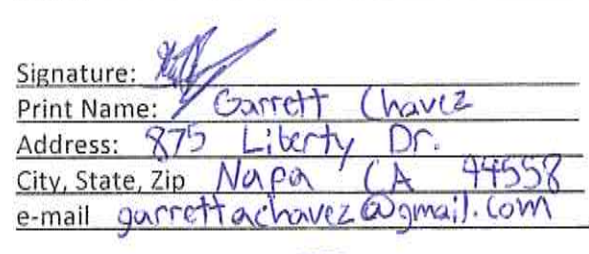 Signature:
Print Name: Garrett Chavez
Address: 875 Liberty Dr.
City, State, Zip Napa CA 94558
e-mail garrettachavez@gmail.com